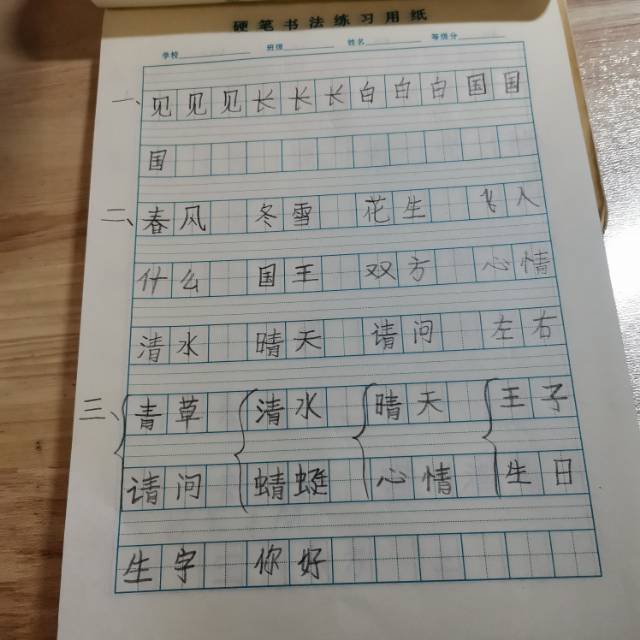 硬笔书法练习用纸
学校 班级 姓名 等级分
一、见见见长长长白白白国国
国
二、春风 冬雪 花生 飞入
什么 国王 双方 心情
清水 晴天 请问 左右
三、青草 清水 晴天 王子
请问 蜻蜓 心情 生日
生字 你好